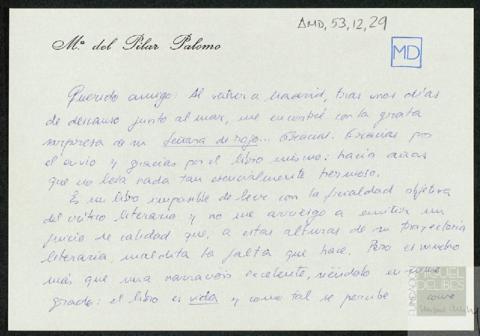 AMD, 53, 12, 29
Mª del Pilar Palomo
MD
Querido amigo: Al volver a Madrid, tras unos días
de descanso junto al mar, me encontré con la grata
sorpresa de su Señora de rojo... Gracias. Gracias por
el envío y gracias por el libro mismo: hacía años
que no leía nada tan esencialmente hermoso.
Es un libro imposible de leer con la frialdad objetiva
del crítico literario y no me arriesgo a emitir un
juicio de calidad que, a estas alturas de su trayectoria
literaria, maldita la falta que hace. Pero es mucho
más que una narración excelente, siéndolo en
grado: el libro es vida y como tal se percibe
FUNDACIÓN MIGUEL DELIBES